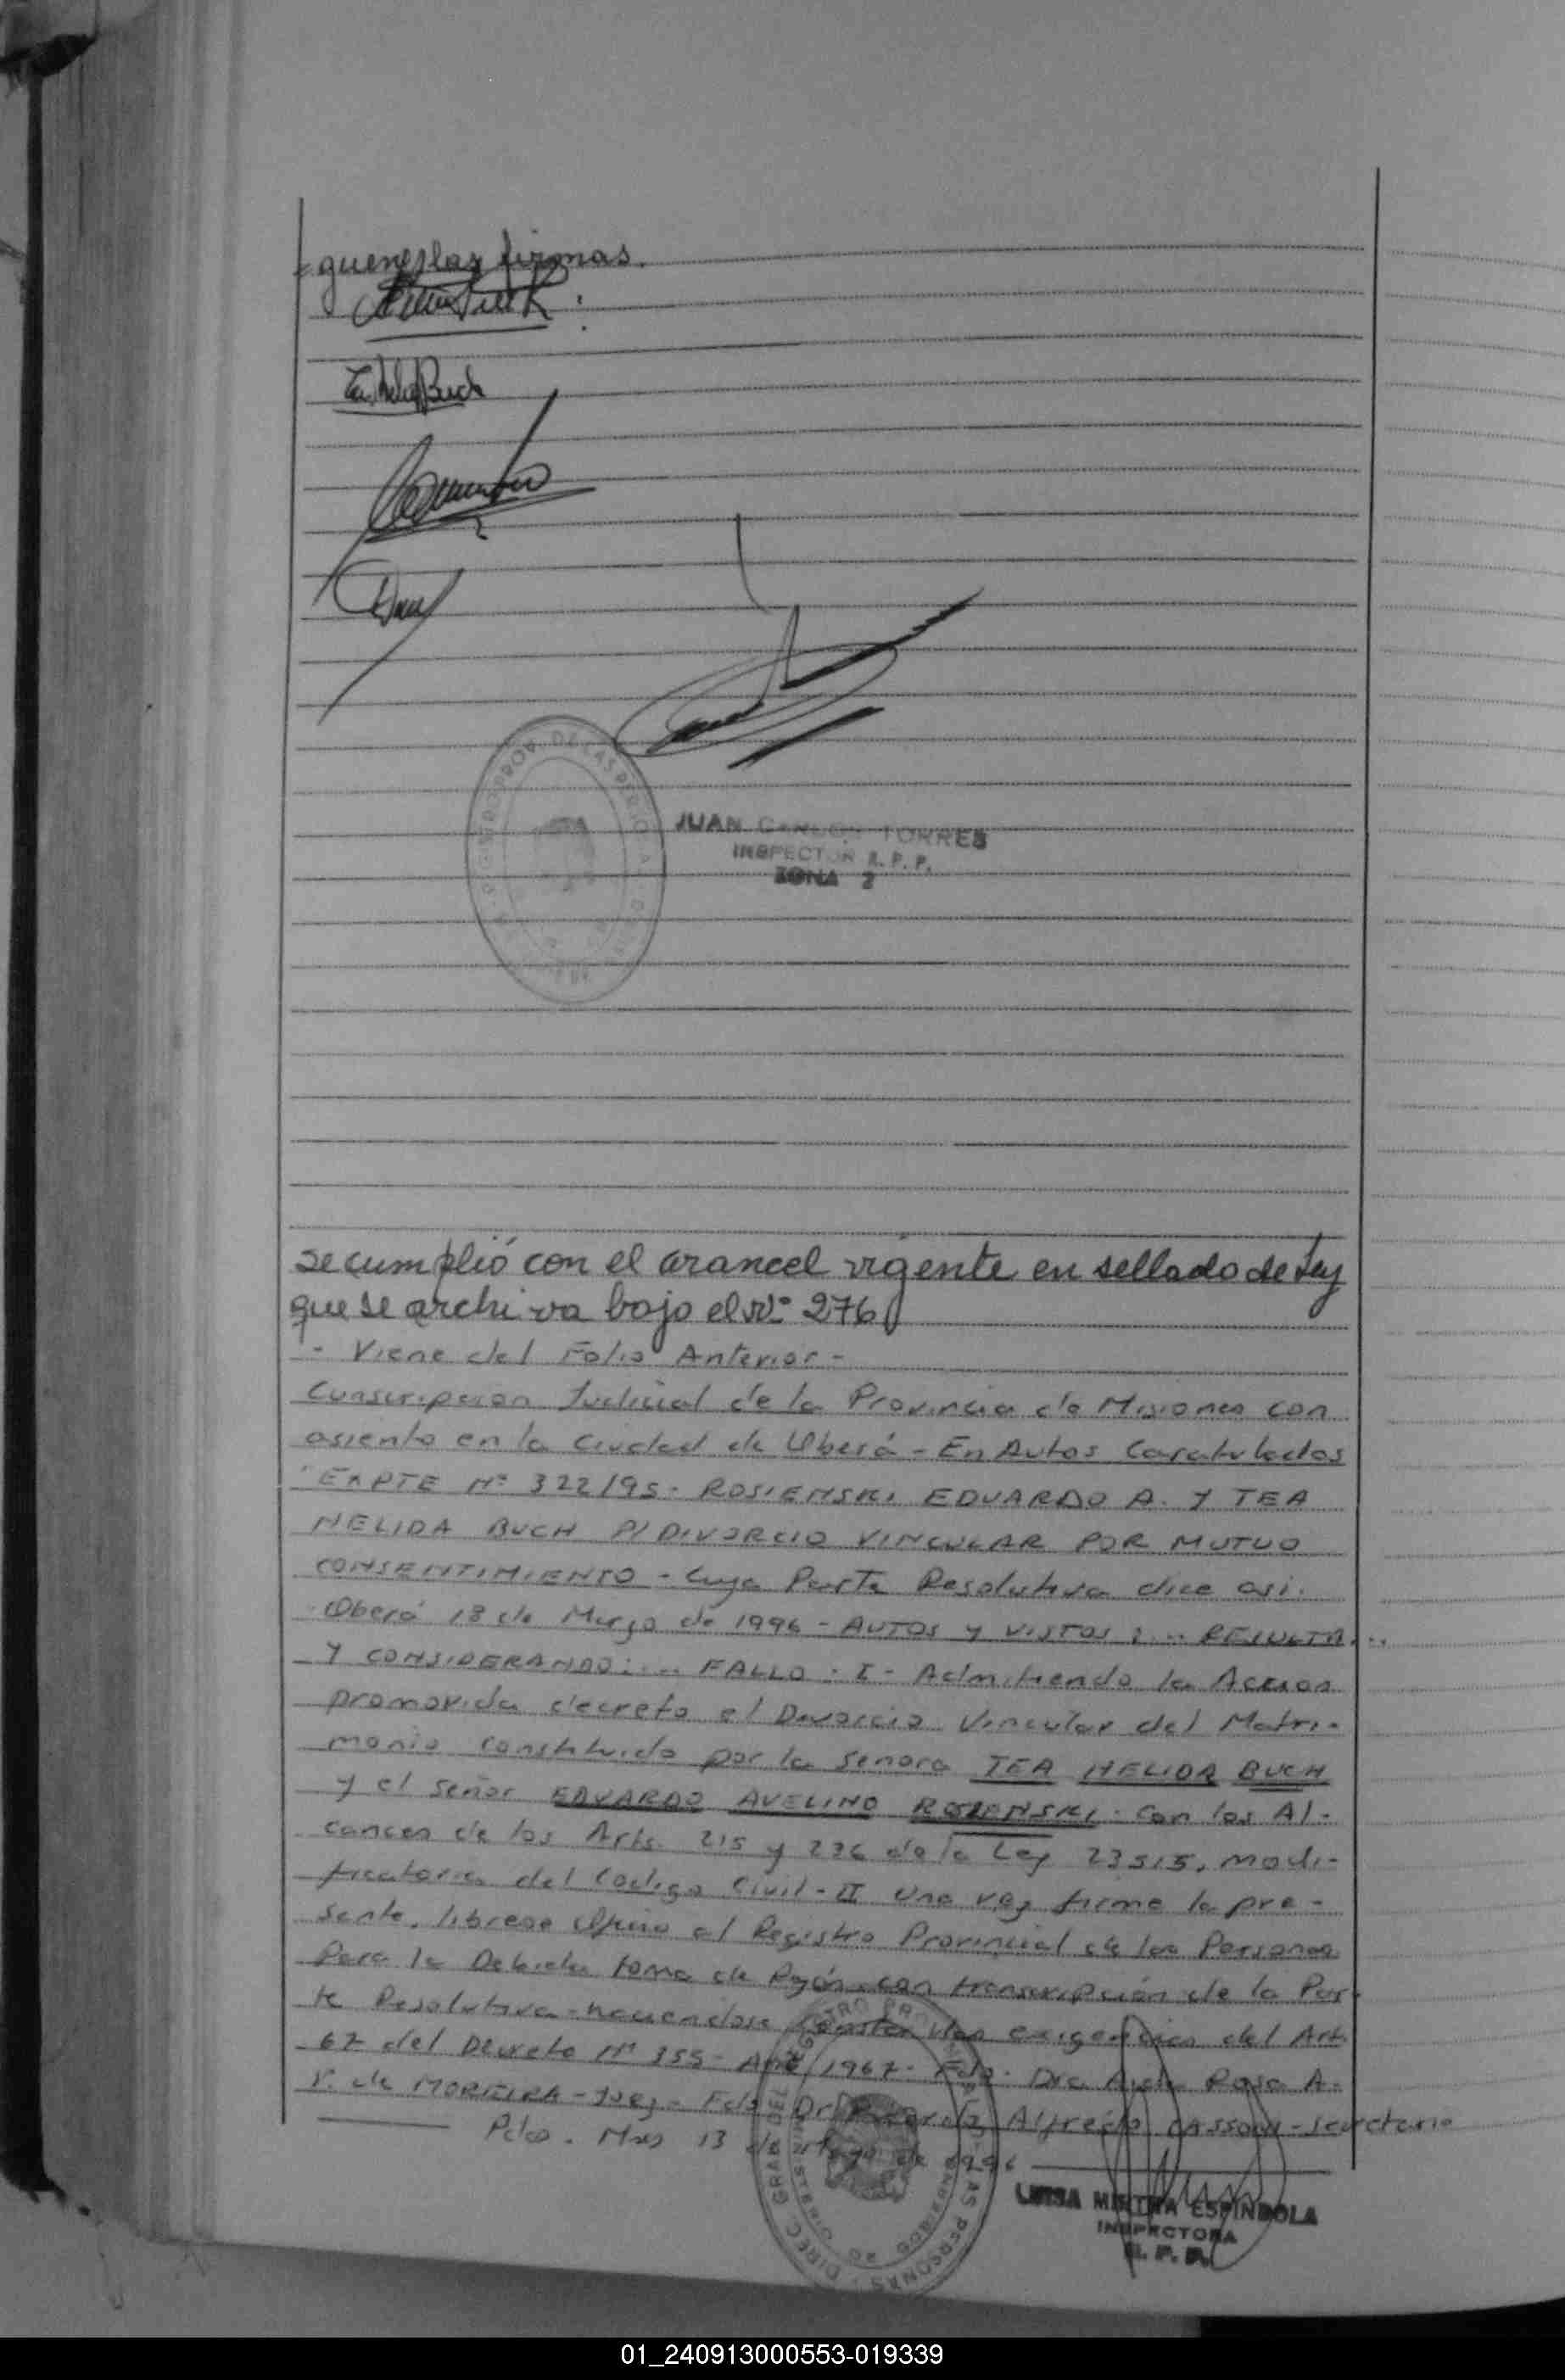 = guen las firmas.
JUAN CARLOS TORRES
INSPECTOR R. P. P.
ZONA 2
Se cumplió con el arancel vigente en sellado de Ley
que se archiva bajo el Nº 276
- Viene del Folio Anterior -
Cunscripcion Judicial de la Provincia de Misiones con
asiento en la Ciudad de Oberá - En Autos Caratulados
"EXPTE Nº 322/95 - ROSIENSKI EDUARDO A. Y TEA
NELIDA BUCH P/ DIVORCIO VINCULAR POR MUTUO
CONSENTIMIENTO - Cuya Parte Resolutiva dice asi.
Oberá 18 de Marzo de 1996 - AUTOS Y VISTOS : ... RESULTA...
Y CONSIDERANDO: ... FALLO - I - Admitiendo la Accion
promovida decreto el Divorcio Vincular del Matri-
monio constituido por la Señora TEA NELIDA BUCH
y el señor EDUARDO AVELINO ROSIENSKI - Con los Al-
cances de los Arts. 215 y 236 de la Ley 23515, modi-
ficatoria del Codigo Civil - II Una vez firme la pre-
sente, librese Oficio al Registro Provincial de las Personas
Para la Debida toma de Razón, con transcripción de la Par-
te Resolutiva - haciendose constar las exigencias del Art.
67 del Decreto Nº 355 - Año 1967 - Fdo. Dra Aida Rosa A.
S. de MOREIRA - Juez - Fdo Dr Ricardo Alfredo CASSONI - Secretario
Pdas. Mnes 13 de de 1996
LUISA MIRTHA ESPINDOLA
INSPECTORA
R. P. P.
01_240913000553-019339